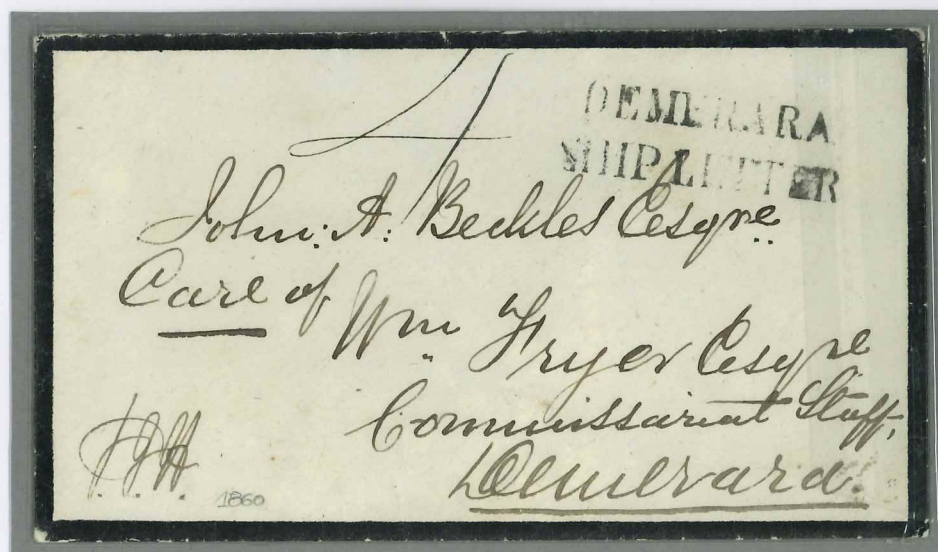 4
DEMERARA
SHIP LETTER
John: A: Beckles Esqre
Care of
Wm Fryer Esqre
Commissariat Staff,
Demerara.
1860